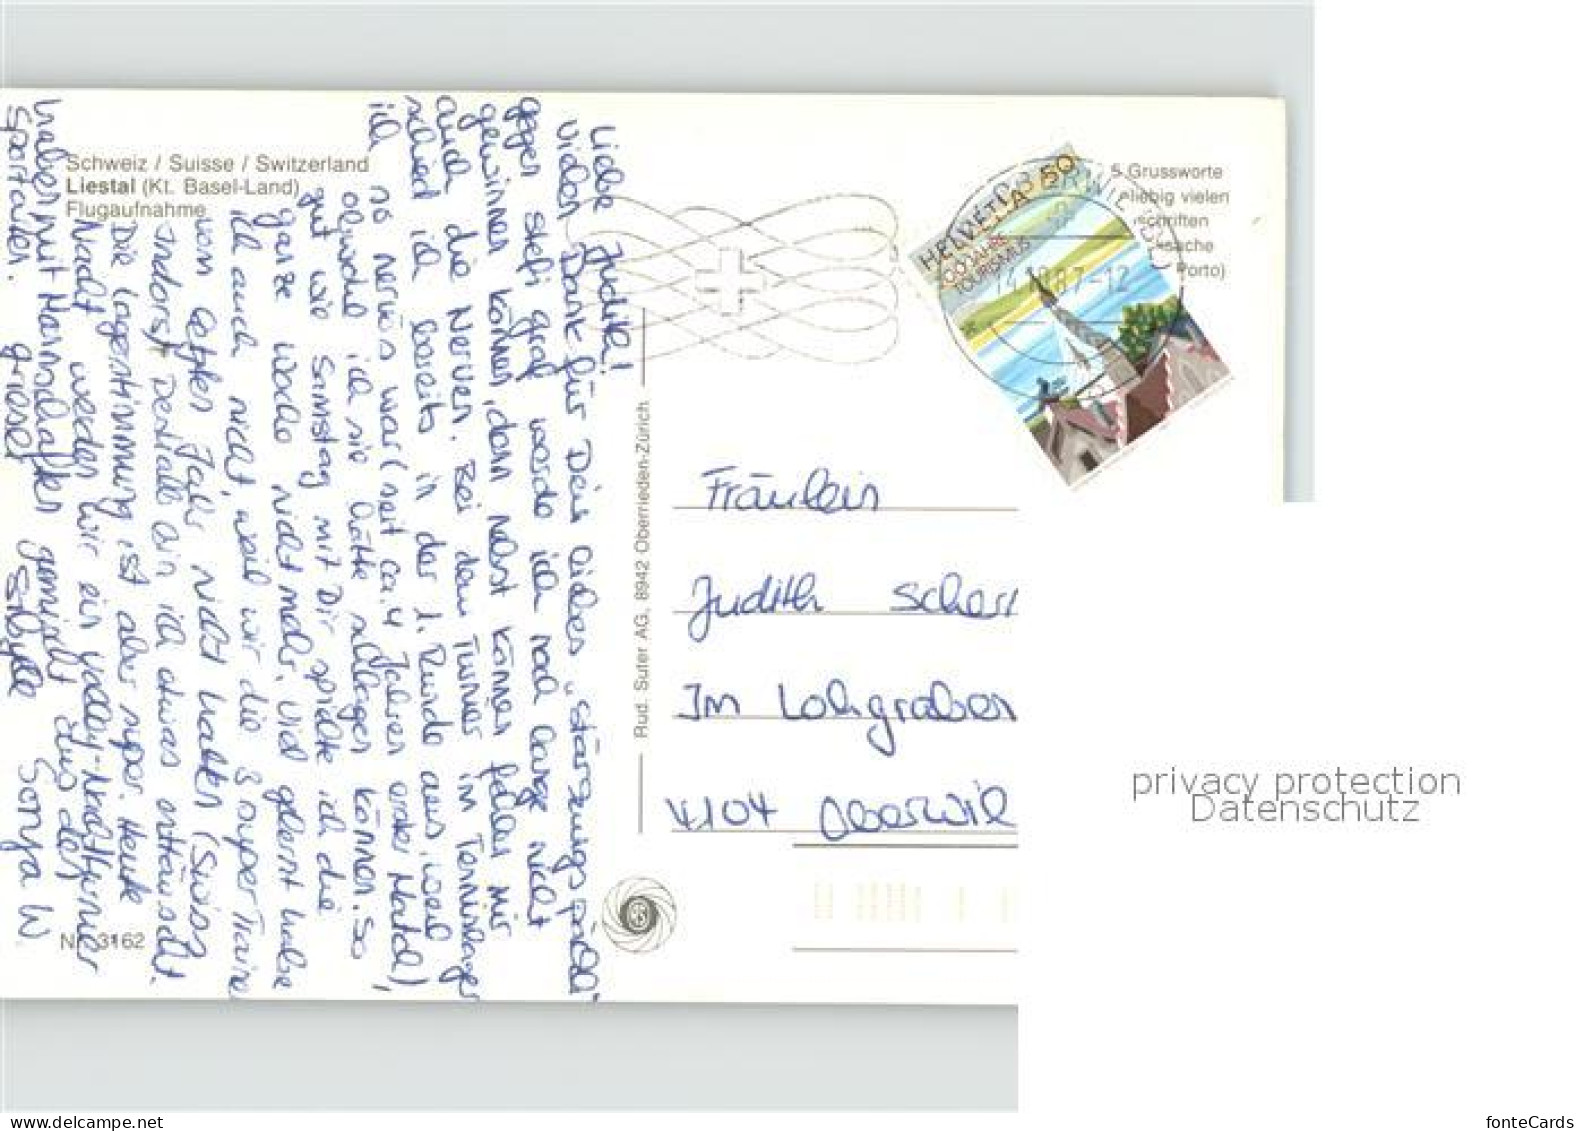 Schweiz / Suisse / Switzerland
Liestal (Kt. Basel-Land)
Flugaufnahme
Liebe Judith!
Vielen Dank für Dein liebes „Stärkungspäckli"
gegen Stefi Graf werde ich noch lange nicht
gewinnen können, denn nebst können fehlen mir
auch die Nerven. Bei dem Turnier im Tennislager
schied ich bereits in der 1. Runde aus, weil
ich so nervös war (seit ca. 4 Jahren erster Match),
obwohl ich sie hätte schlagen können. So
gut wie Samstag mit Dir spielte ich die
ganze Woche nicht mehr. Viel gelernt habe
ich auch nicht, weil wir die 3 super Trainer
vom letzten Jahr nicht hatten (Swiss
Indors). Deshalb bin ich etwas enttäuscht.
Die Lagerstimmung ist aber super. Heute
Nacht werden wir ein Volley-Nachtturnier
haben mit Mannschaften gemischt aus der
Sportarten.
Griesel
Sibylle
Sonya W
Nr. 3162
Rud. Suter AG, 8942 Oberrieden-Zürich
HELVETIA 50
200 JAHRE
TOURISMUS
14.10.87-12
5 Grussworte
eliebig vielen
schriften
sache
Porto)
Fräulein
Judith Scher
Im Lohgraben
4104 Oberwil
privacy protection
Datenschutz
fonteCards